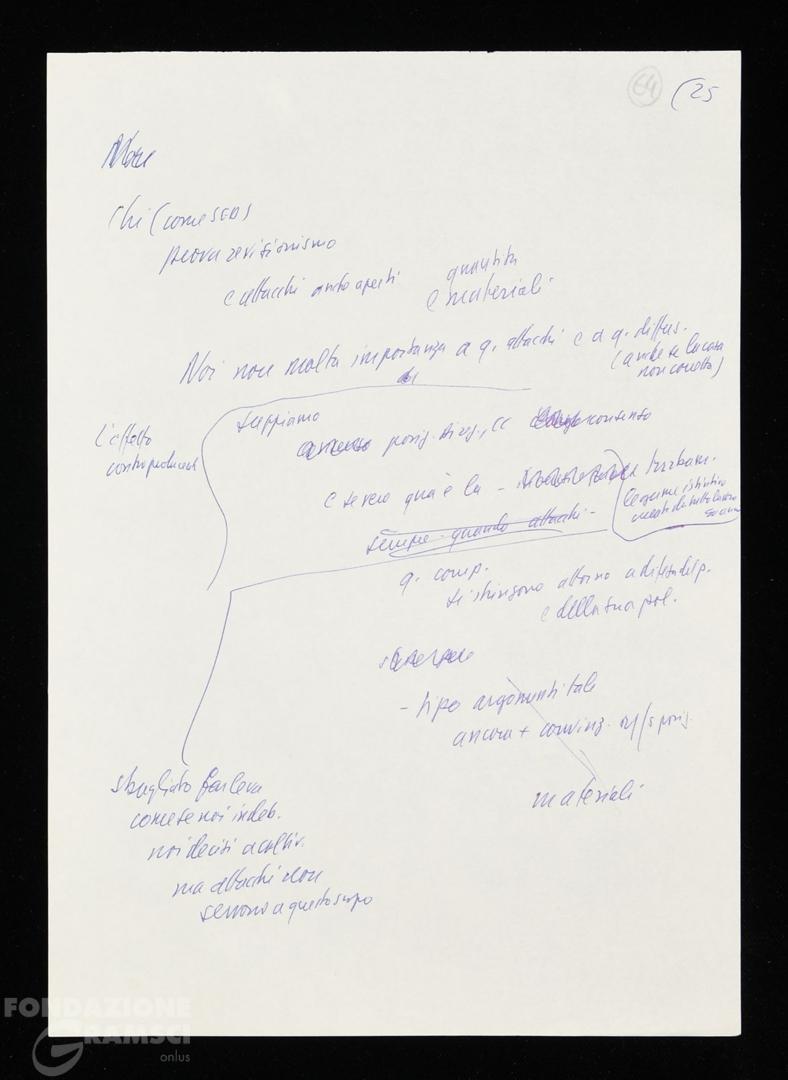 64 (25
Note
Chi (come SED)
prova revisionismo
e attacchi anche aperti
quantità
e materiali
Noi non molta importanza a q. attacchi e a q. diffus.
(anche se la cosa
non corretta)
L'effetto
controproducente
sappiamo
posiz. dirig., CC consenso
e se vero qua e là - turbam.
legame istintivo
sempre quando attacchi -
q. comp.
si stringono attorno a difesa del p.
e della sua pol.
- tipo argomenti tale
ancora + convinz. posiz.
materiali
sbagliato far leva
come se noi indeb.
noi decisi a coltiv.
ma attacchi non
servono a questo scopo
FONDAZIONE
GRAMSCI
onlus